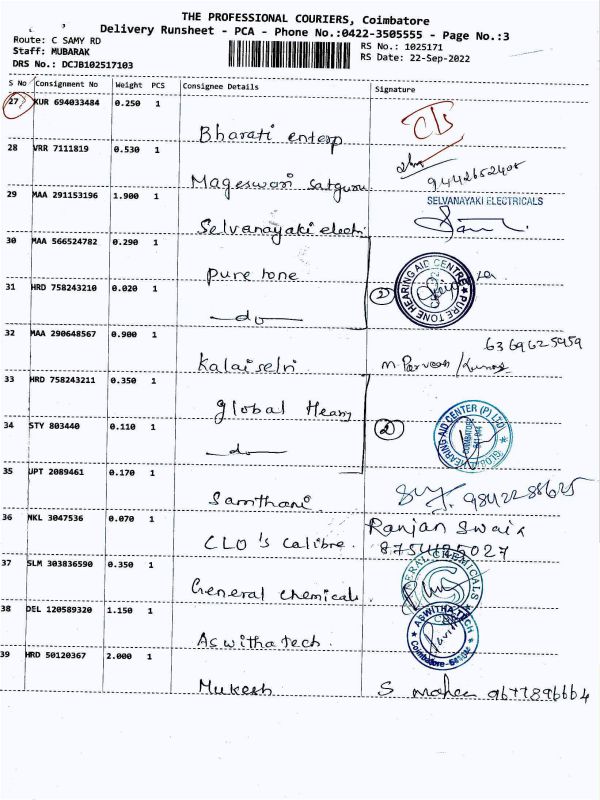 THE PROFESSIONAL COURIERS, Coimbatore
Delivery Runsheet - PCA - Phone No.:0422-3505555 - Page No.:3
Route: C SAMY RD
Staff: MUBARAK
DRS No.: DCJB102517103
RS No.: 1025171
RS Date: 22-Sep-2022
S No Consignment No Weight PCS Consignee Details Signature
27 KUR 694033484 0.250 1
Bharati enterp
28 VRR 7111819 0.530 1
Mageswari satguru
29 MAA 291153196 1.900 1
SELVANAYAKI ELECTRICALS
Selvanayaki electri
30 MAA 566524782 0.290 1
pure tone
PURE TONE HEARING AID CENTRE
31 HRD 758243210 0.020 1
2
do
32 MAA 290648567 0.900 1
6369625959
Kalaiselvi
33 HRD 758243211 0.350 1
global Hearing
34 STY 803440 0.110 1
2
HEARING AID CENTER (P) LTD
do
35 UPT 2089461 0.170 1
Samthani
36 NKL 3047536 0.070 1
Ranjan Swain
CLO's Calibre.
37 SLM 303836590 0.350 1
General chemicals.
GENERAL CHEMICALS
38 DEL 120589320 1.150 1
Aswitha tech.
ASWITHA TECH
Coimbatore
39 HRD 50120367 2.000 1
Mukesh